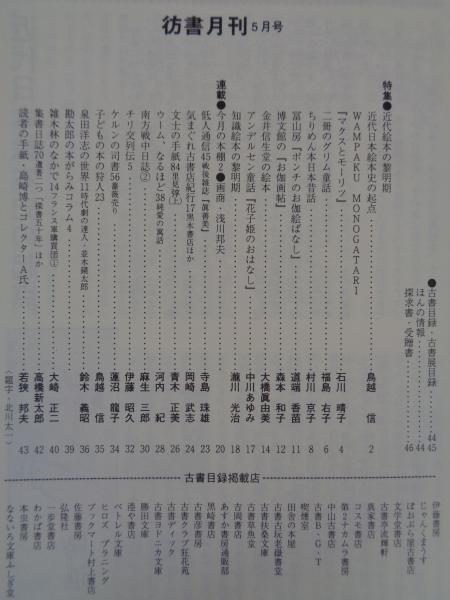 彷書月刊 5月号
特集●近代絵本の黎明期
近代日本絵本史の起点 鳥越 信 2
WAMPAKU MONOGATARI
『マクスとモーリツ』 石川 晴子 4
二冊のグリム童話 福島 右子 6
ちりめん本日本昔話 村川 京子 8
冨山房『ポンチのお伽絵ばなし』 道端 香苗 11
博文館の『お伽画帖』 森本 和子 12
金井信生堂の絵本 大橋眞由美 14
アンデルセン童話『花子姫のおはなし』 中川あゆみ 17
知識絵本の黎明期 瀧川 光治 18
連載●
●今月の本棚2●画商・浅川邦夫 20
低人通信45戦後雑誌『眞善美』 寺島 珠雄 23
気まぐれ古書店紀行17黒木書店ほか 岡崎 武志 24
文士の手紙84里見弴(上) 青木 正美 26
ウーム、なるほど38純愛の寓話 河内 紀 28
南方戦中日誌② 麻生 三郎 30
チリ交列伝5 伊藤 昭久 32
ケルンの司書56薔薇売り 蓮沼 龍子 34
子どもの本の狩人23 鳥越 信 35
泉田洋志の世界11時代劇の達人・並木鏡太郎 鈴木 義昭 36
勘太郎の本がらみコラム4 39
雑木林のなかで14フランス軍購買団① 大崎 正二 40
集書日誌70遺著二つ『探書五十年』ほか 高橋新太郎 42
読者の手紙・島崎博とコレクターA氏 若狭 邦夫 43
●古書目録・古書展目録 44 45
ほんの情報 44
探求書・受贈書 46
〈題字・北川太一〉
古書目録掲載店
伊藤書房
じゃんくまうす
ぽおぶら屋古書店
文学堂書店
古書亭流輝軒
真家書店
コスモ書店
第2ナカムラ書房
中山古書店
古書B・G・T
喫煙室
田舎の本屋
古書古玩老猿書堂
古書扶桑文庫
古書草魚堂
古国書店
あすか書房通販部
黒崎書店
古書彦書房
古書クラブ狂花苑
古書ディック
古書ヨドニカ文庫
勝田文庫
港や書店
ペトレル文庫
ヒロズ プラニング
ブックマート村上書店
佐藤書房
弘隆社
一歩堂書店
わかば書店
本虫書房
なないろ文庫ふしぎ堂